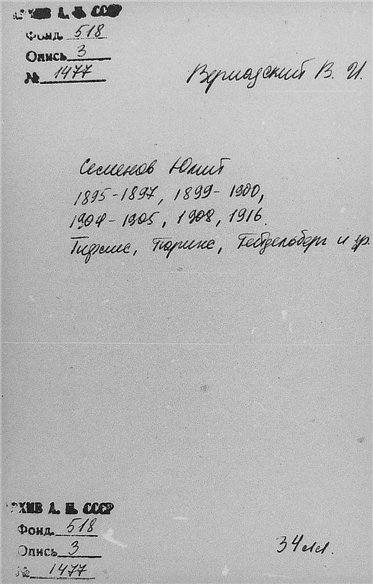 АРХИВ А. Н. СССР
Фонд 518
Опись 3
№ 1477
Вернадский В. И.
Семенов Юлий
1895-1897, 1899-1900,
1904-1905, 1908, 1916.
Тифлис, Париж, Гейдельберг и др.
АРХИВ А. Н. СССР
Фонд. 518
Опись 3
№ 1477
34 лл.